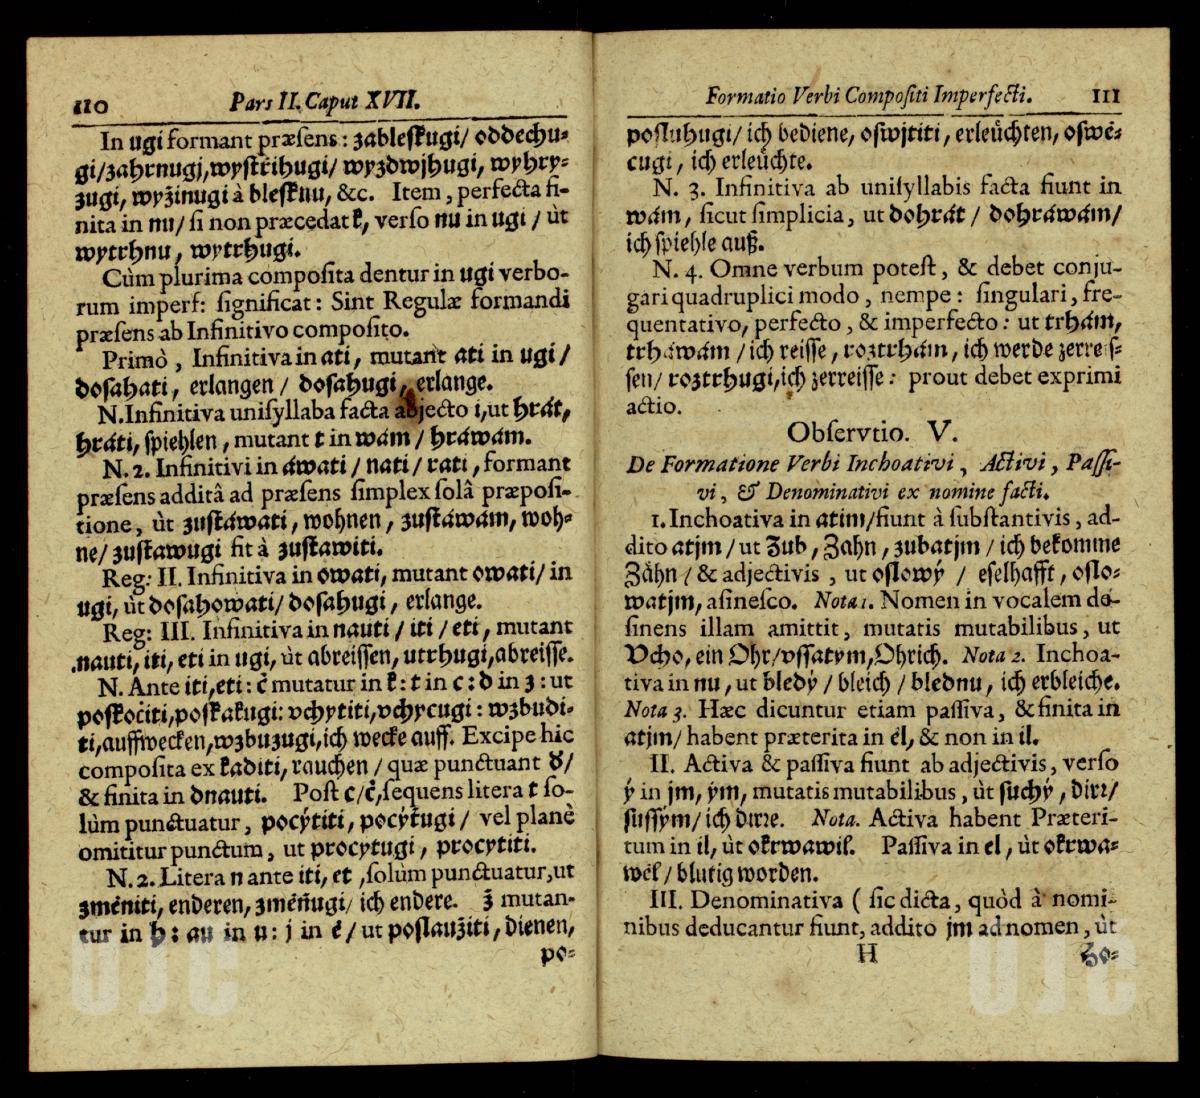 110 Pars II. Caput XVII.
In ugi formant præſens: zableſkugi/ oddechu-
gi/zahrnugj,wyſtřihugi/ wyzdwjhugi, wyhry-
zugi, wyžinugi à bleſknu, &c. Item, perfecta fi-
nita in nu/ ſi non præcedat k, verſo nu in ugi / ùt
wytrhnu, wytrhugi.
Cùm plurima compoſita dentur in ugi verbo-
rum imperf: ſignificat: Sint Regulæ formandi
præſens ab Infinitivo compoſito.
Primò, Infinitiva in ati, mutant ati in ugi/
doſahati, erlangen / doſahugi, erlange.
N. Infinitiva uniſyllaba facta adjecto i,ut hrát,
hráti, ſpiehlen, mutant t in wám / hráwám.
N. 2. Infinitivi in áwati / nati / rati, formant
præſens additâ ad præſens ſimplex ſolâ præpoſi-
tione, ùt zuſtáwati, wohnen, zuſtáwám, woh-
ne/ zuſtawugi fit à zuſtawiti.
Reg: II. Infinitiva in owati, mutant owati/ in
ugi, ùt doſahowati/ doſahugi, erlange.
Reg: III. Infinitiva in nauti / iti / eti, mutant
nauti, iti, eti in ugi, ùt abreiſſen, utrhugi,abreiſſe.
N. Ante iti,eti: č mutatur in k: t in c: d in z: ut
poſkočiti,poſkakugi: vchytiti,vchycugi: wzbudi-
ti,auffwecken,wzbuzugi,ich wecke auff. Excipe hic
compoſita ex kaditi, rauchen / quæ punctuant ď/
& finita in dnauti. Poſt c/č,ſequens litera t ſo-
lùm punctuatur, pocýtiti, pocýťugi / vel planè
omititur punctum, ut procytugi, procytiti.
N. 2. Litera n ante iti, et ,ſolùm punctuatur,ut
změniti, enderen, změňugi/ ich endere. ž mutan-
tur in h: au in u: j in ě/ ut poſlaužiti, dienen,
po-
Formatio Verbi Compoſiti Imperfecti. 111
poſluhugi/ ich bediene, oſwjtiti, erleüchten, oſwě-
cugi, ich erleüchte.
N. 3. Infinitiva ab uniſyllabis facta fiunt in
wám, ſicut ſimplicia, ut dohrát / dohráwám/
ich ſpiehle auß.
N. 4. Omne verbum poteſt, & debet conju-
gari quadruplici modo, nempe: ſingulari, fre-
quentativo, perfecto, & imperfecto: ut trhám,
trháwám / ich reiſſe, roztrhám, ich werde zerreiſ-
ſen/ roztrhugi,ich zerreiſſe: prout debet exprimi
actio.
Obſervtio. V.
De Formatione Verbi Inchoativi, Activi, Paſſi-
vi, & Denominativi ex nomine facti.
1. Inchoativa in atim/fiunt à ſubſtantivis, ad-
dito atjm/ ut Zub, Zahn, zubatjm / ich bekomme
Zähn / & adjectivis, ut oſlowý / eſelhafft, oſlo-
watjm, aſineſco. Nota 1. Nomen in vocalem de-
ſinens illam amittit, mutatis mutabilibus, ut
Vcho, ein Ohr/vſſatym,Ohrich. Nota 2. Inchoa-
tiva in nu, ut bledý / bleich / blednu, ich erbleiche.
Nota 3. Hæc dicuntur etiam paſſiva, & finita in
atjm/ habent præterita in ěl, & non in il.
II. Activa & paſſiva fiunt ab adjectivis, verſo
ý in jm, ým, mutatis mutabilibus, ùt ſuchý, dirr/
ſuſſým/ ich dirre. Nota. Activa habent Præteri-
tum in il, ùt okrwawil. Paſſiva in el, ùt okrwa-
wěl / blutig worden.
III. Denominativa ( ſic dicta, quòd à nomi-
nibus deducantur fiunt, addito jm ad nomen, ùt
H ho-